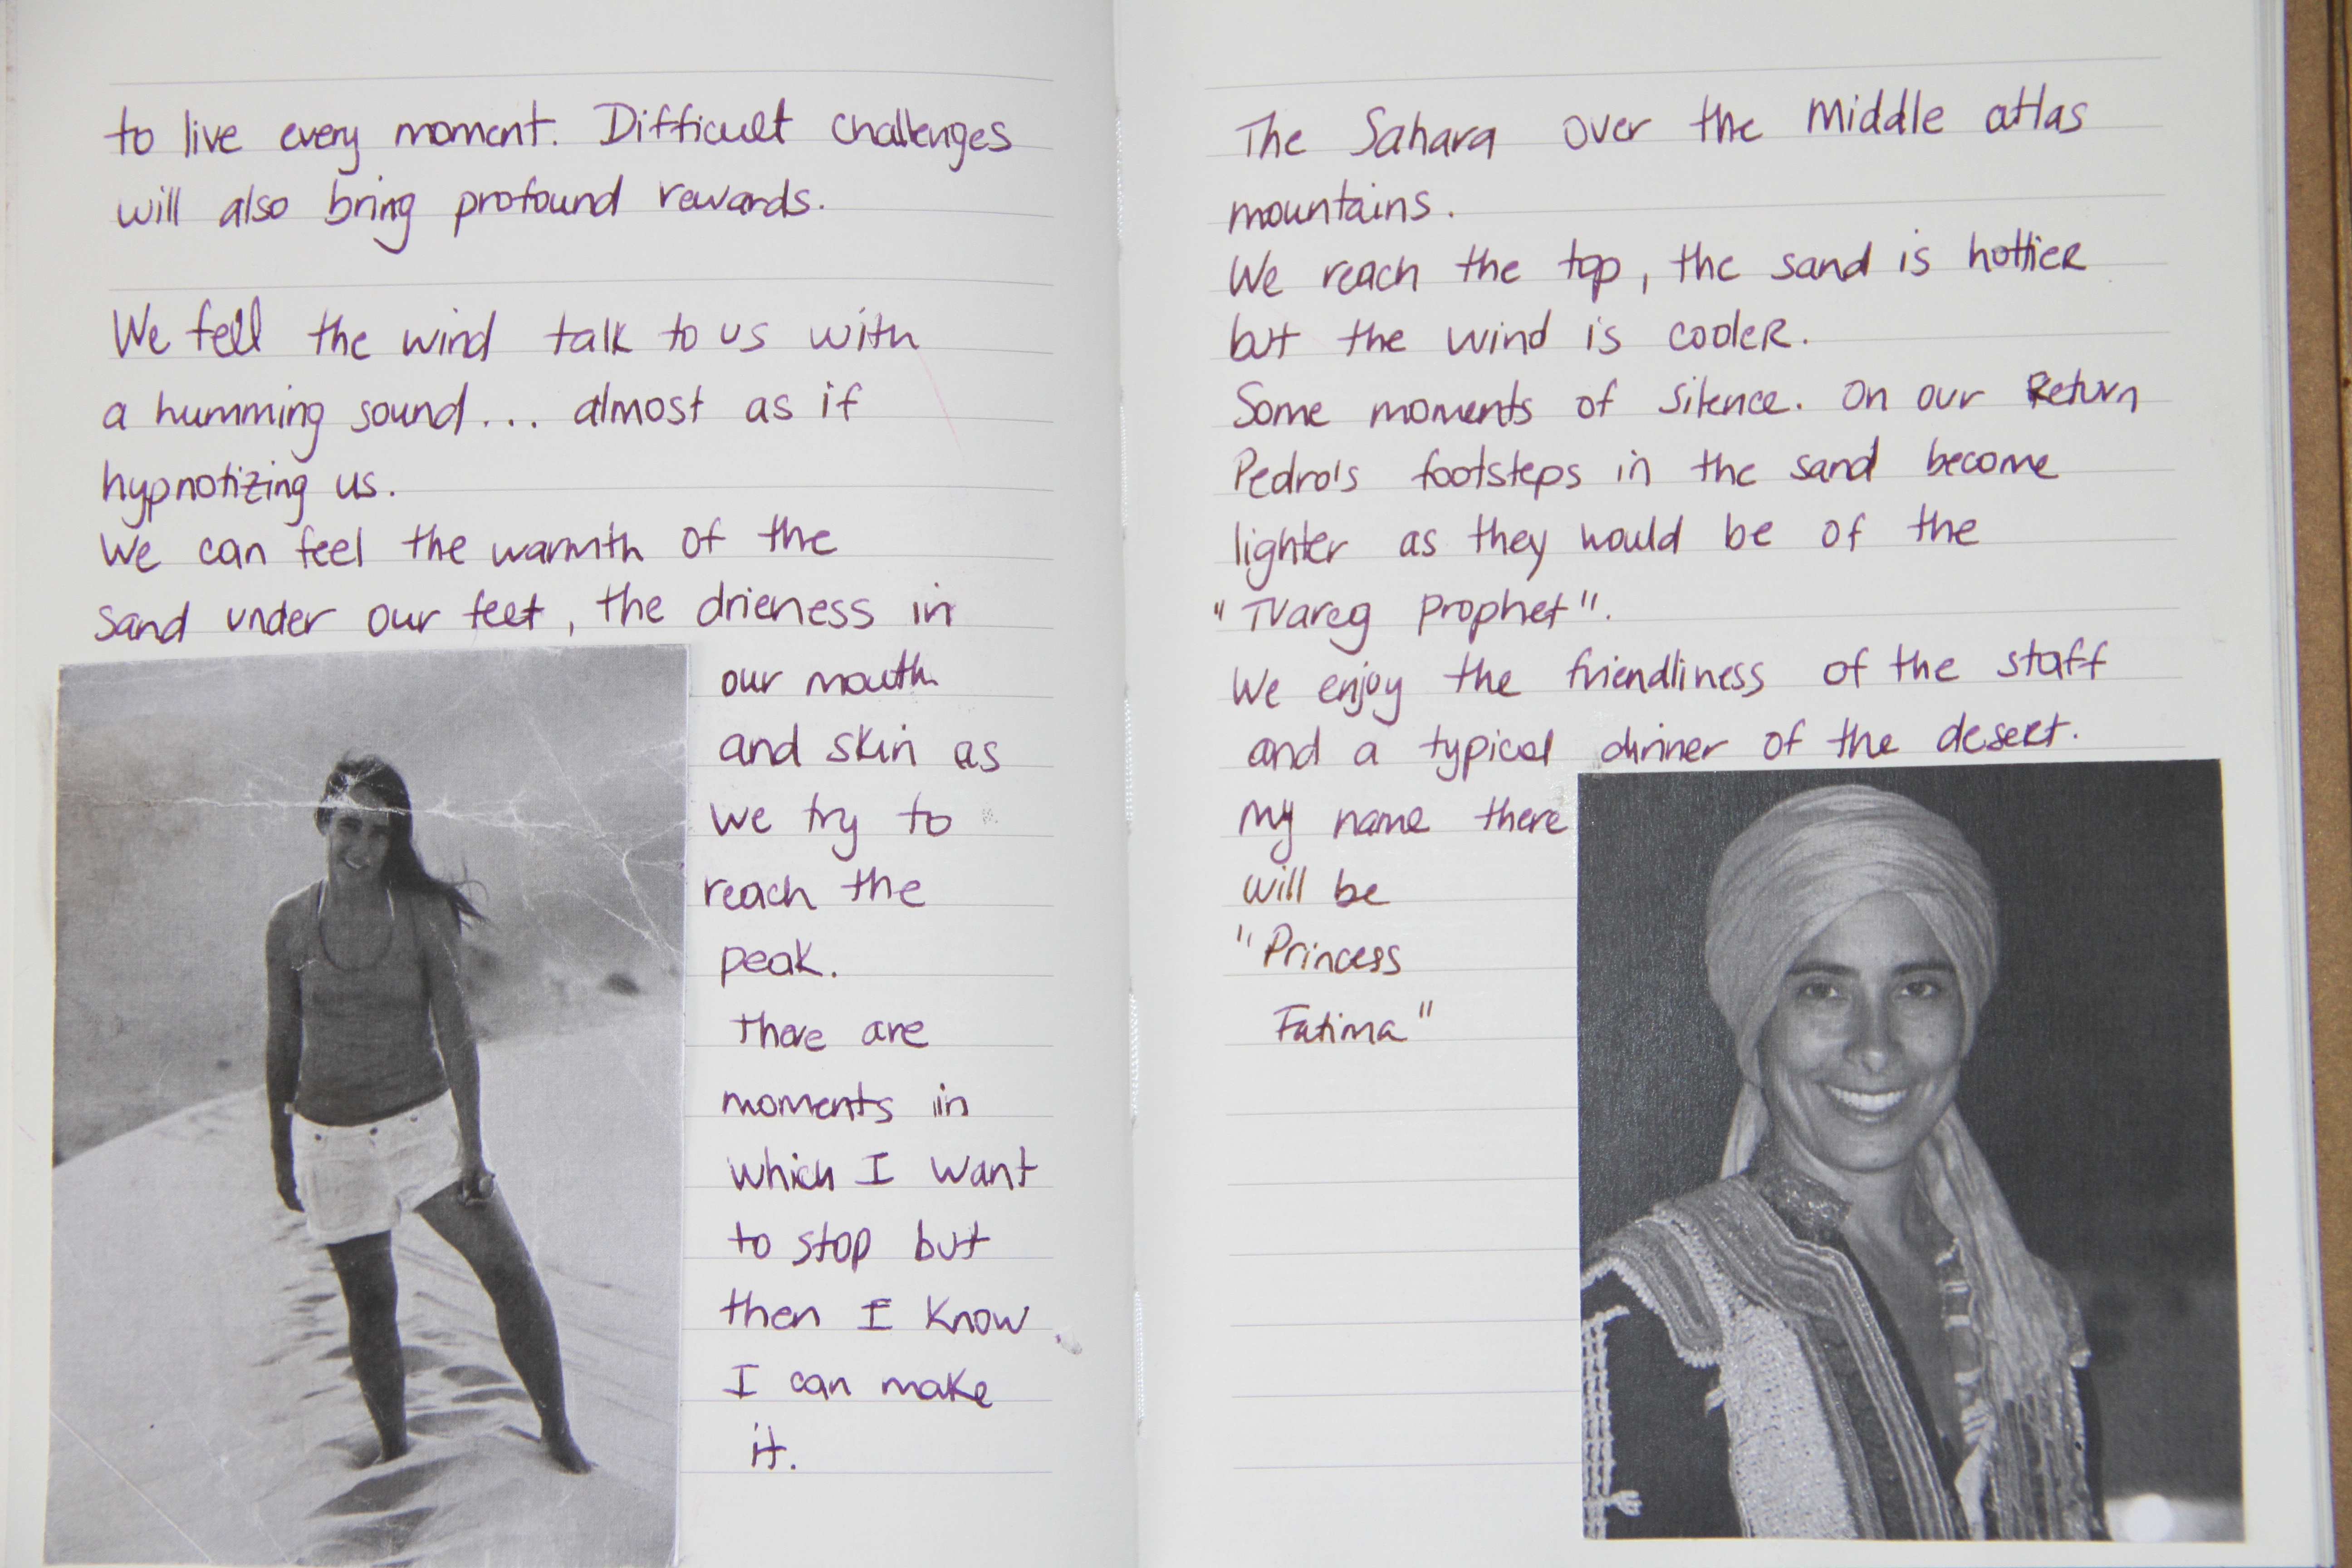 to live every moment. Difficult challenges
will also bring profound rewards.
We fell the wind talk to us with
a humming sound... almost as if
hypnotizing us.
We can feel the warmth of the
sand under our feet, the drieness in
our mouth
and skin as
we try to
reach the
peak.
there are
moments in
which I want
to stop but
then I know
I can make
it.
The Sahara over the Middle atlas
mountains.
We reach the top, the sand is hottier
but the wind is cooler.
Some moments of silence. On our Return
Pedro's footsteps in the sand become
lighter as they would be of the
"Tvareg prophet".
We enjoy the friendliness of the staff
and a typical dinner of the desert.
My name there
will be
"Princess
Fatima"